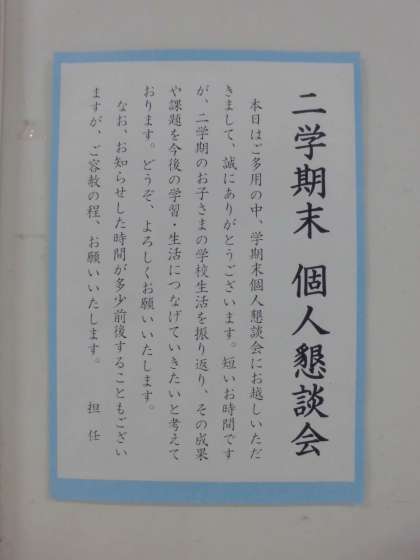 二学期末 個人懇談会
本日はご多用の中、学期末個人懇談会にお越しいただ
きまして、誠にありがとうございます。短いお時間です
が、二学期のお子さまの学校生活を振り返り、その成果
や課題を今後の学習・生活につなげていきたいと考えて
おります。どうぞ、よろしくお願いいたします。
なお、お知らせした時間が多少前後することもござい
ますが、ご容赦の程、お願いいたします。
担任